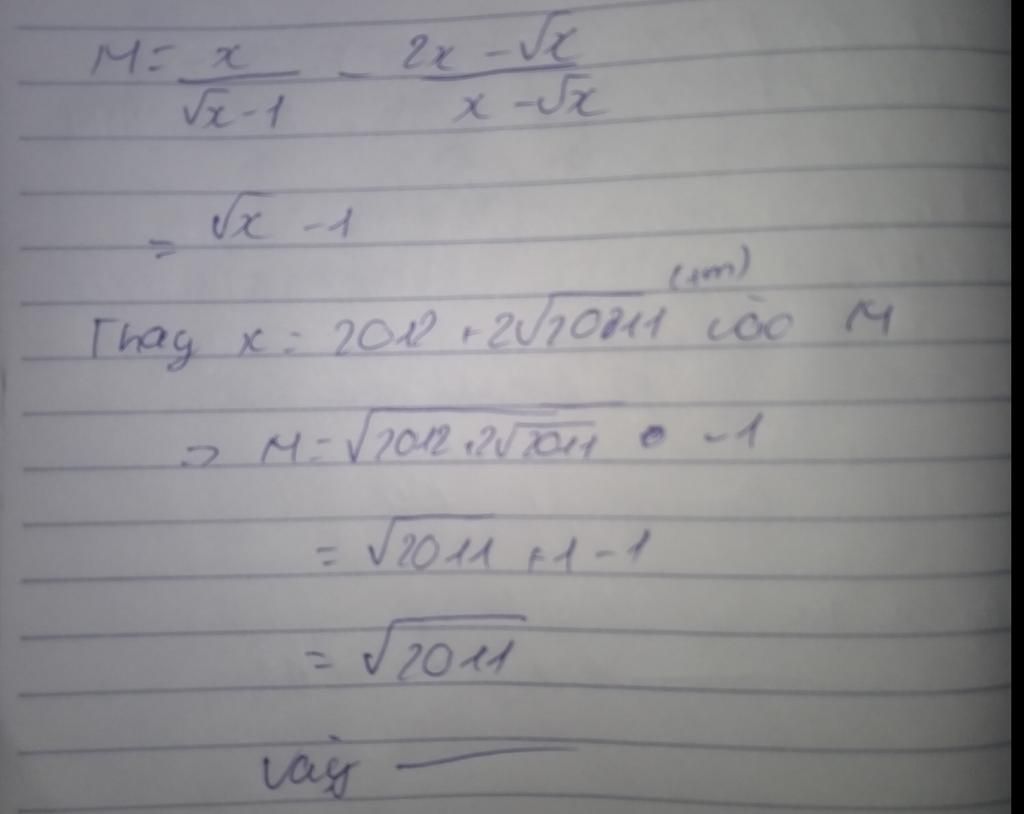 M = x/(√x - 1) - (2x - √x)/(x - √x)
= √x - 1
(tm)
Thay x = 2012 + 2√2011 vào M
=> M = √(2012 + 2√2011) - 1
= √2011 + 1 - 1
= √2011
Vậy